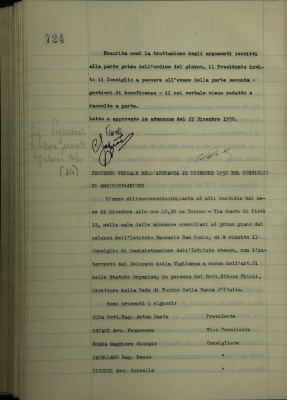 724
Esaurita così la trattazione degli argomenti iscritti
alla parte prima dell'ordine del giorno, il Presidente invi-
ta il Consiglio a passare all'esame della parte seconda -
gestioni di beneficenza - il cui verbale viene redatto e
raccolto a parte.
Letto e approvato in adunanza del 22 Dicembre 1950.
PROCESSO VERBALE DELL'ADUNANZA 22 DICEMBRE 1950 DEL CONSIGLIO
DI AMMINISTRAZIONE
L'anno millenovecentocinquanta ed alli ventidue del me-
se di dicembre alle ore 10,30 in Torino - Via Monte di Pietà
32, nella sala delle adunanze consiliari al primo piano del
palazzo dell'Istituto Bancario San Paolo, si è riunito il
Consiglio di Amministrazione dell'Istituto stesso, con l'in-
tervento del Delegato della Vigilanza a norma dell'art.31
dello Statuto Organico, in persona del Dott. Ettore
Direttore della Sede di Torino della Banca d'Italia.
Sono presenti i signori:
Dott. Rag. Anton Dante Presidente
Avv. Francesco Vice Presidente
Maggiore Giorgio Consigliere
Rag. Renzo "
Avv. Marcello "